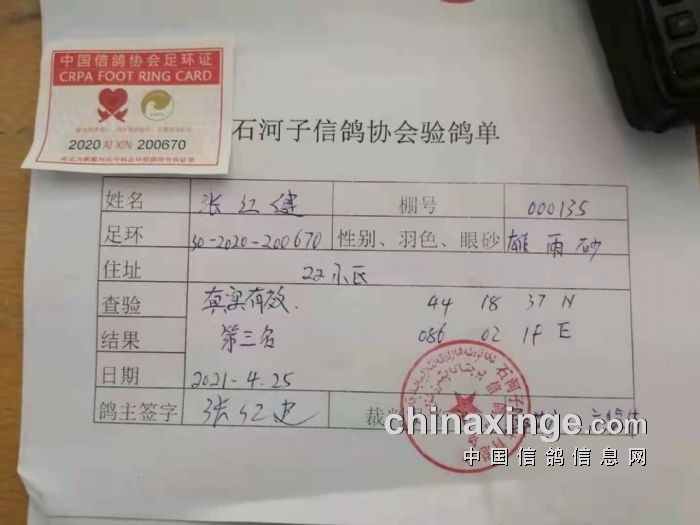 中国信鸽协会足环证
CRPA FOOT RING CARD
2020 AI XIN 200670
石河子信鸽协会验鸽单
姓名 张红建 棚号 000135
足环 30-2020-200670 性别、羽色、眼砂 雄 雨 砂
住址 22小区
查验 真实有效. 44 18 37 N
结果 第三名 086 02 18 E
日期 2021-4.25
鸽主签字 张红建 裁判
石河子 信鸽
chinaxinge.com
中国信鸽信息网